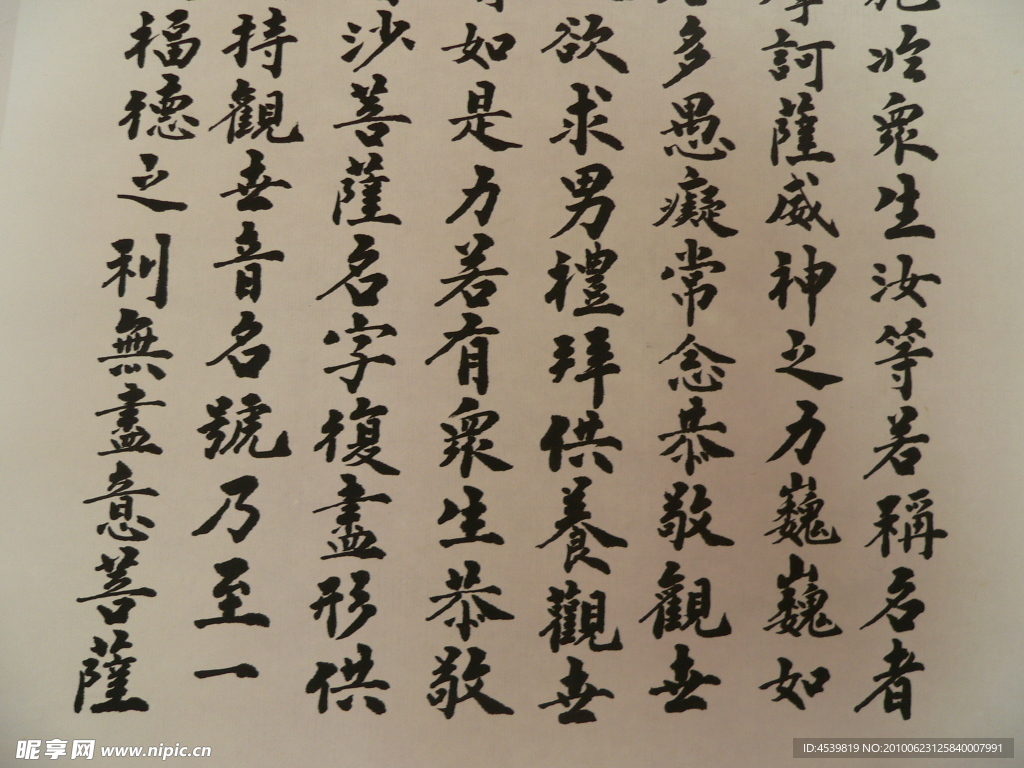 於眾生汝等若稱名者
訶薩威神之力巍巍如
多愚癡常念恭敬觀世
欲求男禮拜供養觀世
如是力若有眾生恭敬
沙菩薩名字復盡形供
持觀世音名號乃至一
福德之利無盡意菩薩
昵享网 www.nipic.cn
ID:4539819 NO:20100623125840007991